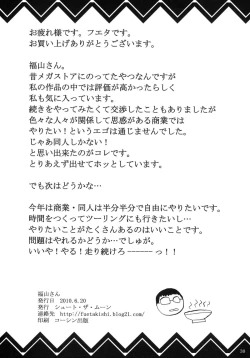 お疲れ様です。フエタです。
お買い上げありがとうございます。
福山さん。
昔メガストアにのってたやつなんですが
私の作品の中では評価が高かったらしく
私も気に入っています。
続きをやってみたくて交渉したこともありましたが
色々な人々が関係して思惑がある商業では
やりたい！というエゴは通じませんでした。
じゃあ同人しかない！
と思い出来たのがコレです。
とりあえず出せてホッとしています。
でも次はどうかな…
今年は商業・同人は半分半分で自由にやりたいです。
時間をつくってツーリングにも行きたいし…
やりたいことがたくさんあるのはいいことです。
問題はやれるかどう…でしゅが。
いいや！やる！走り続けろ------っ！！
福山さん
発行日　2010.6.20
発行　シュート・ザ・ムーン
連絡先　http://fuetakishi.blog21.com/
印刷　コーシン出版